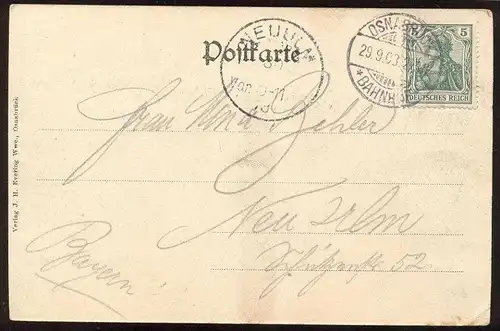 Postkarte
NEUULM
Vor. 9-11.
OSNABRÜCK
29.9.03
* BAHNH
5
DEUTSCHES REICH
Frau
Neu Ulm
Schützenstr 52
Bayern
Verlag J. H. Everting Wwe., Osnabrück